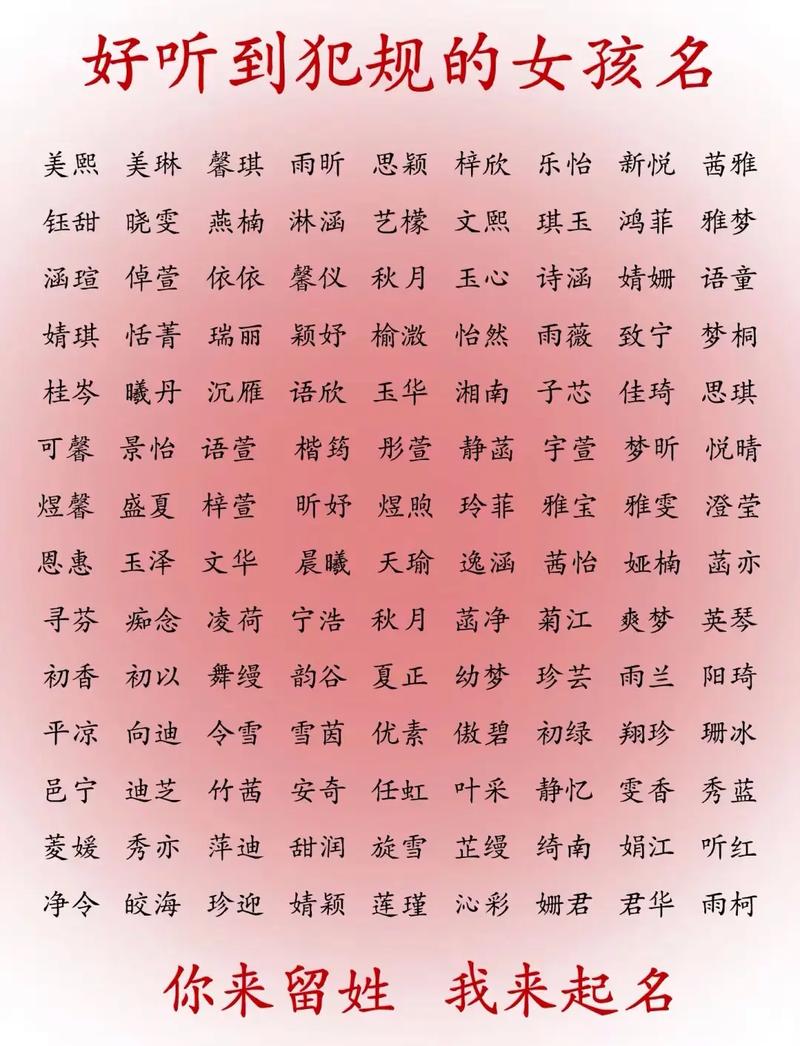 好听到犯规的女孩名
美熙 美琳 馨琪 雨昕 思颖 梓欣 乐怡 新悦 茜雅
钰甜 晓雯 燕楠 淋涵 艺檬 文熙 琪玉 鸿菲 雅梦
涵瑄 倬萱 依依 馨仪 秋月 玉心 诗涵 婧姗 语童
婧琪 恬菁 瑞丽 颖妤 榆溦 怡然 雨薇 致宁 梦桐
桂岑 曦丹 沉雁 语欣 玉华 湘南 子芯 佳琦 思琪
可馨 景怡 语萱 楷筠 彤萱 静菡 宇萱 梦昕 悦晴
煜馨 盛夏 梓萱 昕妤 煜煦 玲菲 雅宝 雅雯 澄莹
恩惠 玉泽 文华 晨曦 天瑜 逸涵 茜怡 娅楠 菡亦
寻芬 痴念 凌荷 宁浩 秋月 菡净 菊江 爽梦 英琴
初香 初以 舞缦 韵谷 夏正 幼梦 珍芸 雨兰 阳琦
平凉 向迪 令雪 雪茵 优素 傲碧 初绿 翔珍 珊冰
邑宁 迪芝 竹茜 安奇 任虹 叶采 静忆 雯香 秀蓝
菱媛 秀亦 萍迪 甜润 旋雪 芷缦 绮南 娟江 听红
净令 皎海 珍迎 婧颖 莲瑾 沁彩 姗君 君华 雨柯
你来留姓 我来起名